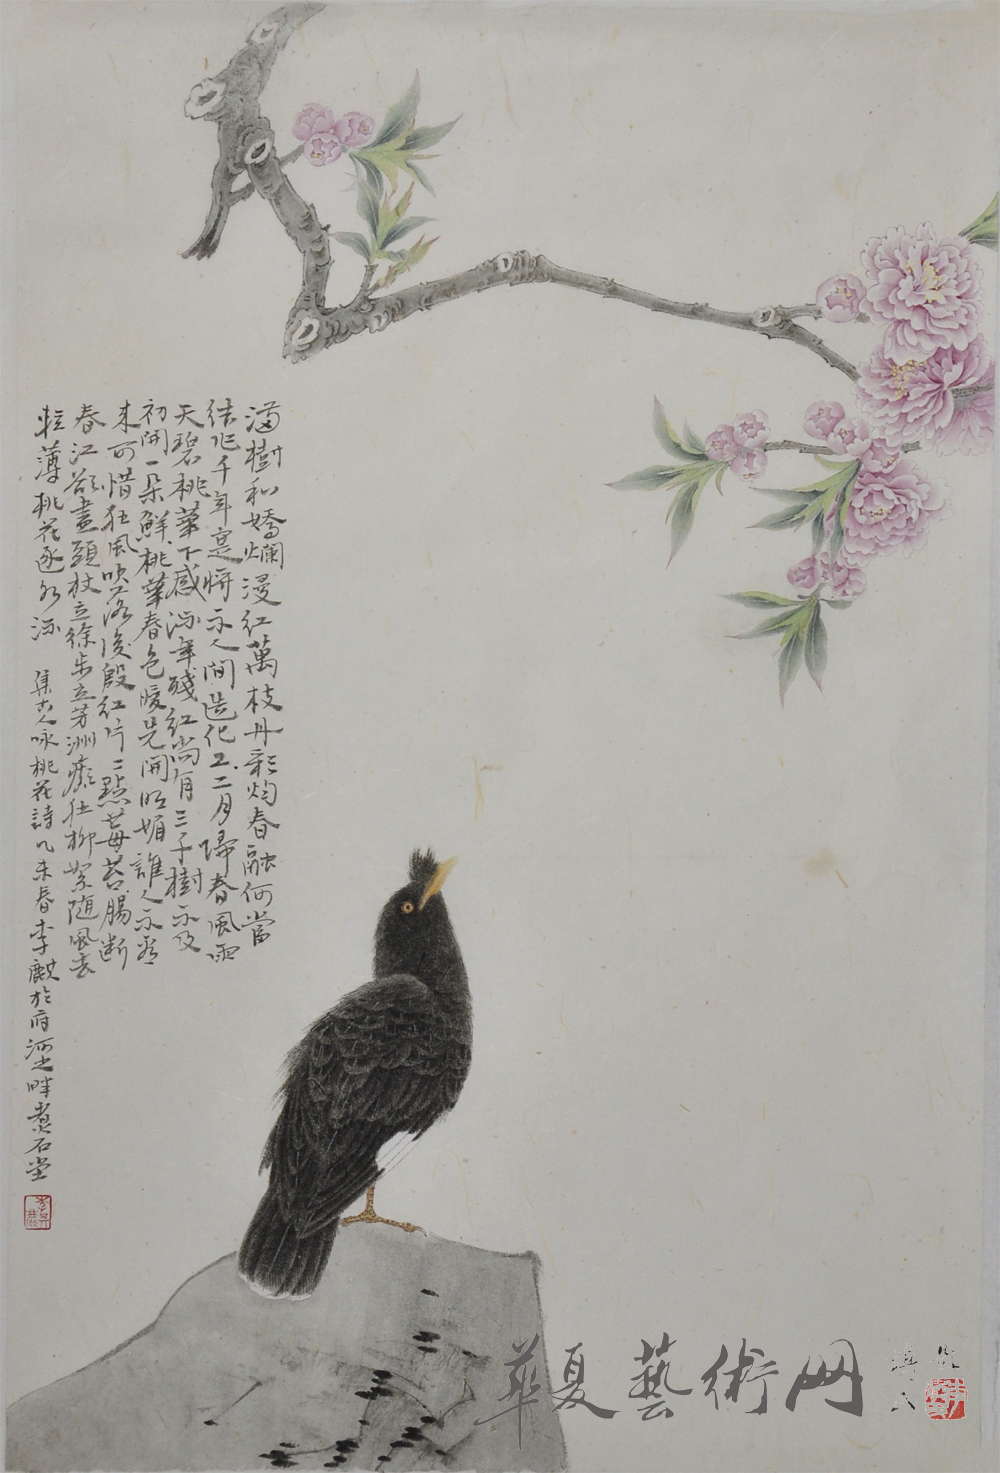 滿樹和嬌爛漫紅萬枝丹彩灼春融何當
結作千年實將示人間造化工二月歸春風雨
天碧桃華下感流年殘紅尚有三千樹不及
初開一朵鮮桃華春色暖先開明媚誰人不看
来可惜狂風吹落後殷紅片二點莓苔腸断
春江欲盡頭杖立徐步立芳洲癲狂柳絮随風去
輕薄桃花逐水流 集古人咏桃花詩乙未春李麒於府河之畔煮石堂
華夏藝術网